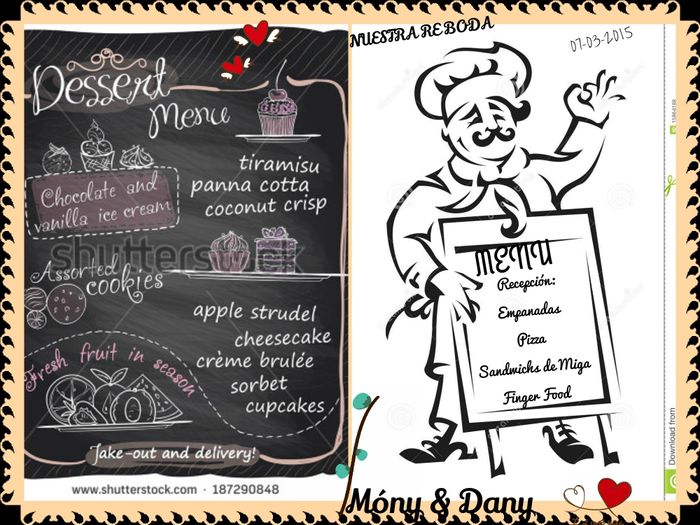 Dessert
Menu
Chocolate and
vanilla ice cream
tiramisu
panna cotta
coconut crisp
shutterstock
Assorted
cookies
apple strudel
cheesecake
crème brulée
sorbet
cupcakes
Fresh fruit in season
Take-out and delivery!
www.shutterstock.com · 187290848
NUESTRA RE BODA
07-03-2015
MENU
Recepción:
Empanadas
Pizza
Sandwichs de Miga
Finger Food
Móny & Dany
Download from